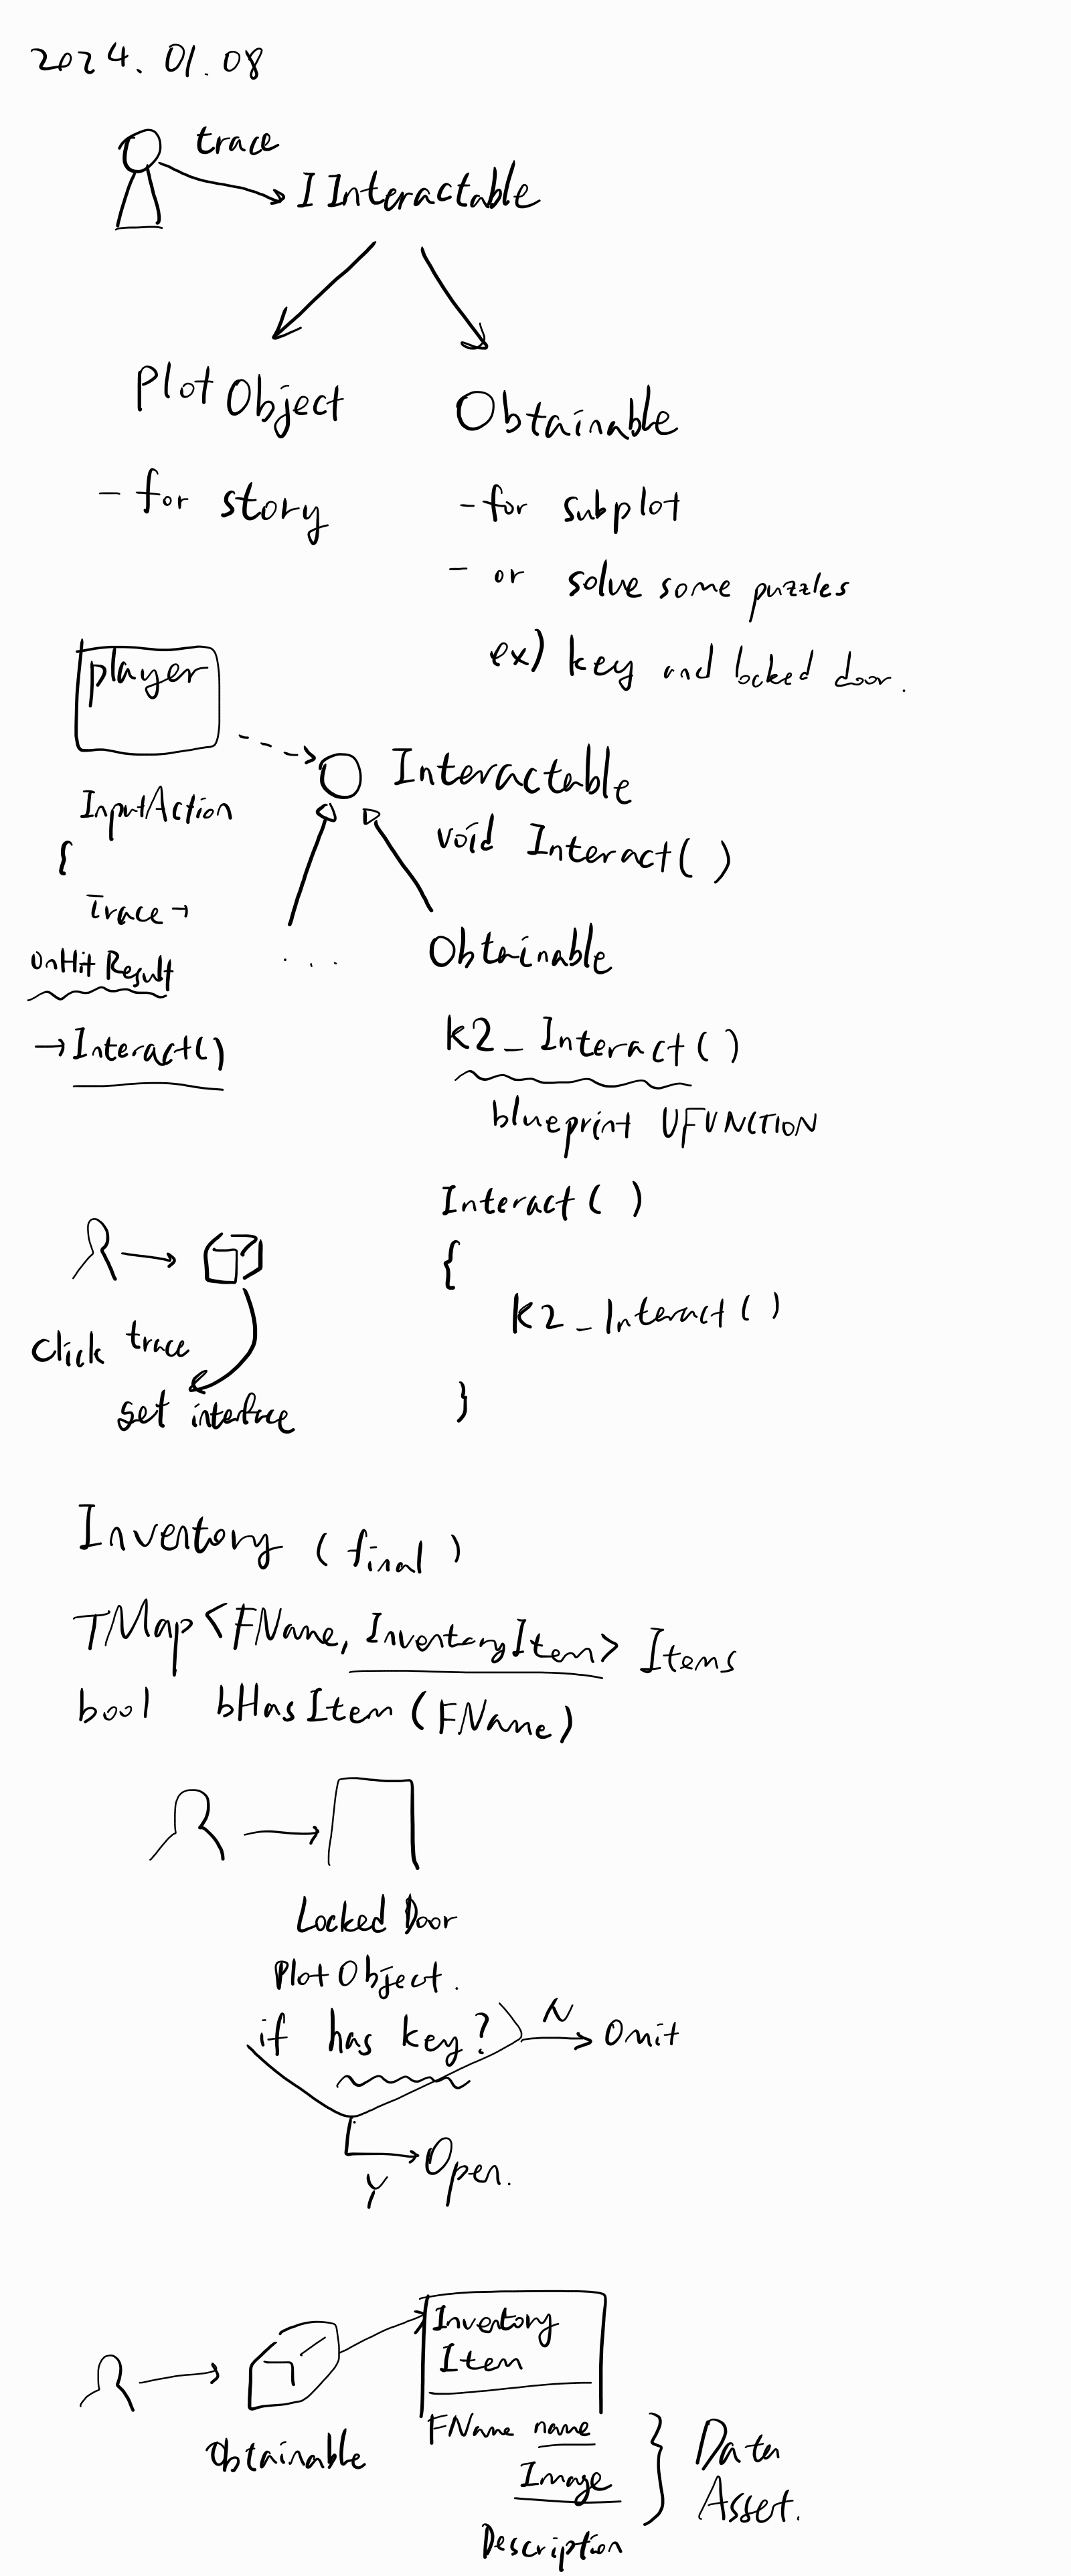 2024. 01. 08
trace
IInteractable
PlotObject
Obtainable
- for story
- for subplot
- or solve some puzzles
ex) key and locked door.
player
Interactable
void Interact( )
InputAction
{
Trace →
onHit Result
→ Interact()
. . .
Obtainable
K2_Interact( )
blueprint UFUNCTION
Interact( )
{
K2_Interact( )
}
click trace
set interface
Inventory (final)
TMap<FName, InventoryItem> Items
bool bHasItem (FName)
Locked Door
PlotObject.
if has key?
N
Omit
Y
Open.
Inventory
Item
Obtainable
FName name
Image
Description
} Data
Asset.